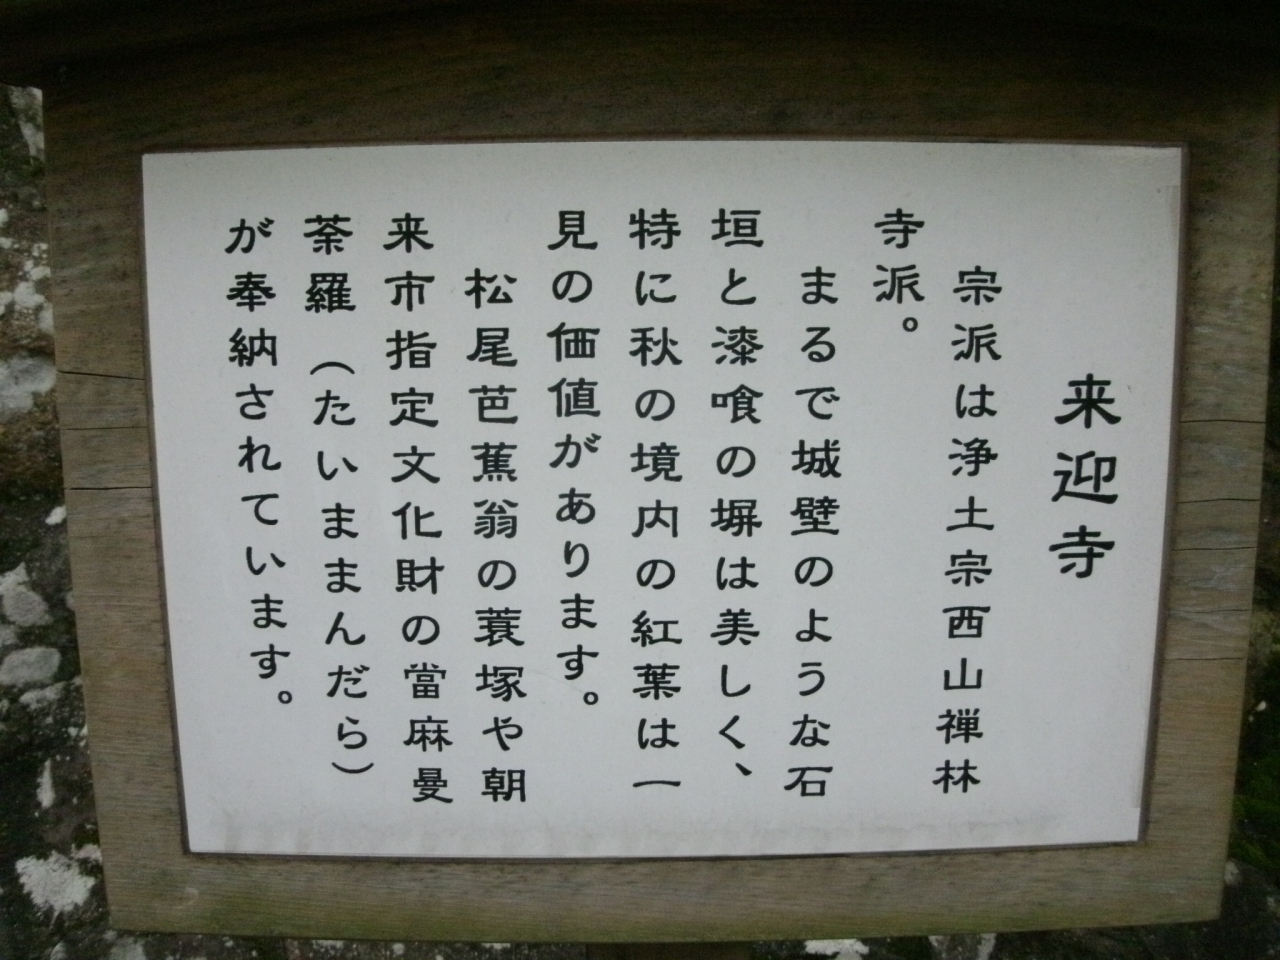 来迎寺
宗派は浄土宗西山禅林
寺派。
まるで城壁のような石
垣と漆喰の塀は美しく、
特に秋の境内の紅葉は一
見の価値があります。
松尾芭蕉翁の蓑塚や朝
来市指定文化財の當麻曼
荼羅（たいままんだら）
が奉納されています。